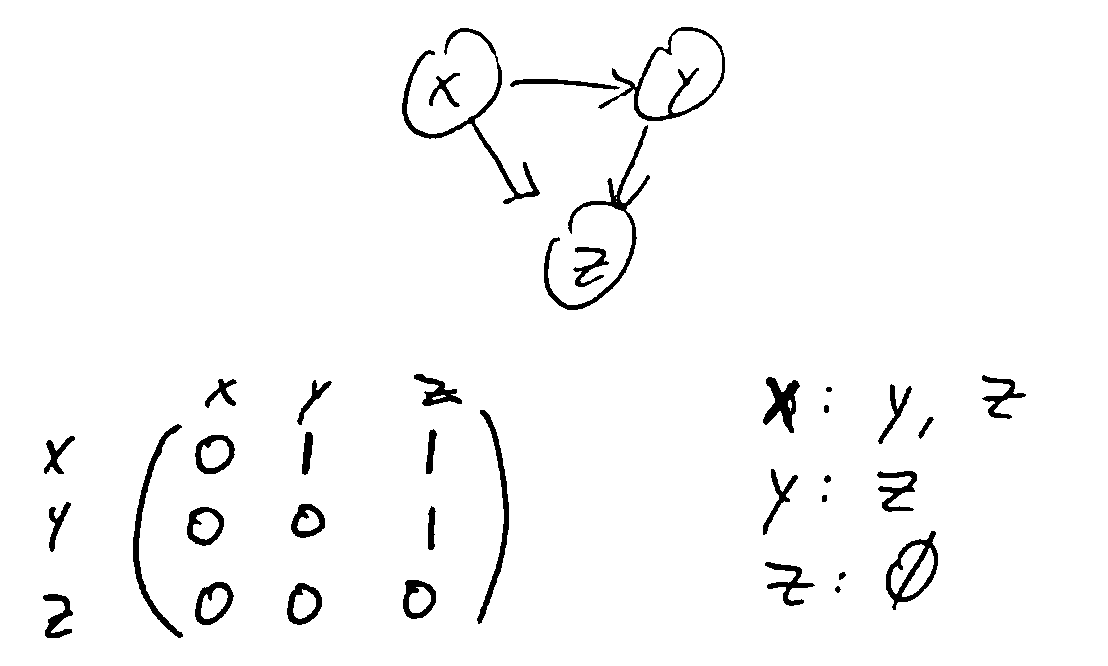 X Y
Z
X Y Z
X 0 1 1
Y 0 0 1
Z 0 0 0
X: Y, Z
Y: Z
Z: Ø